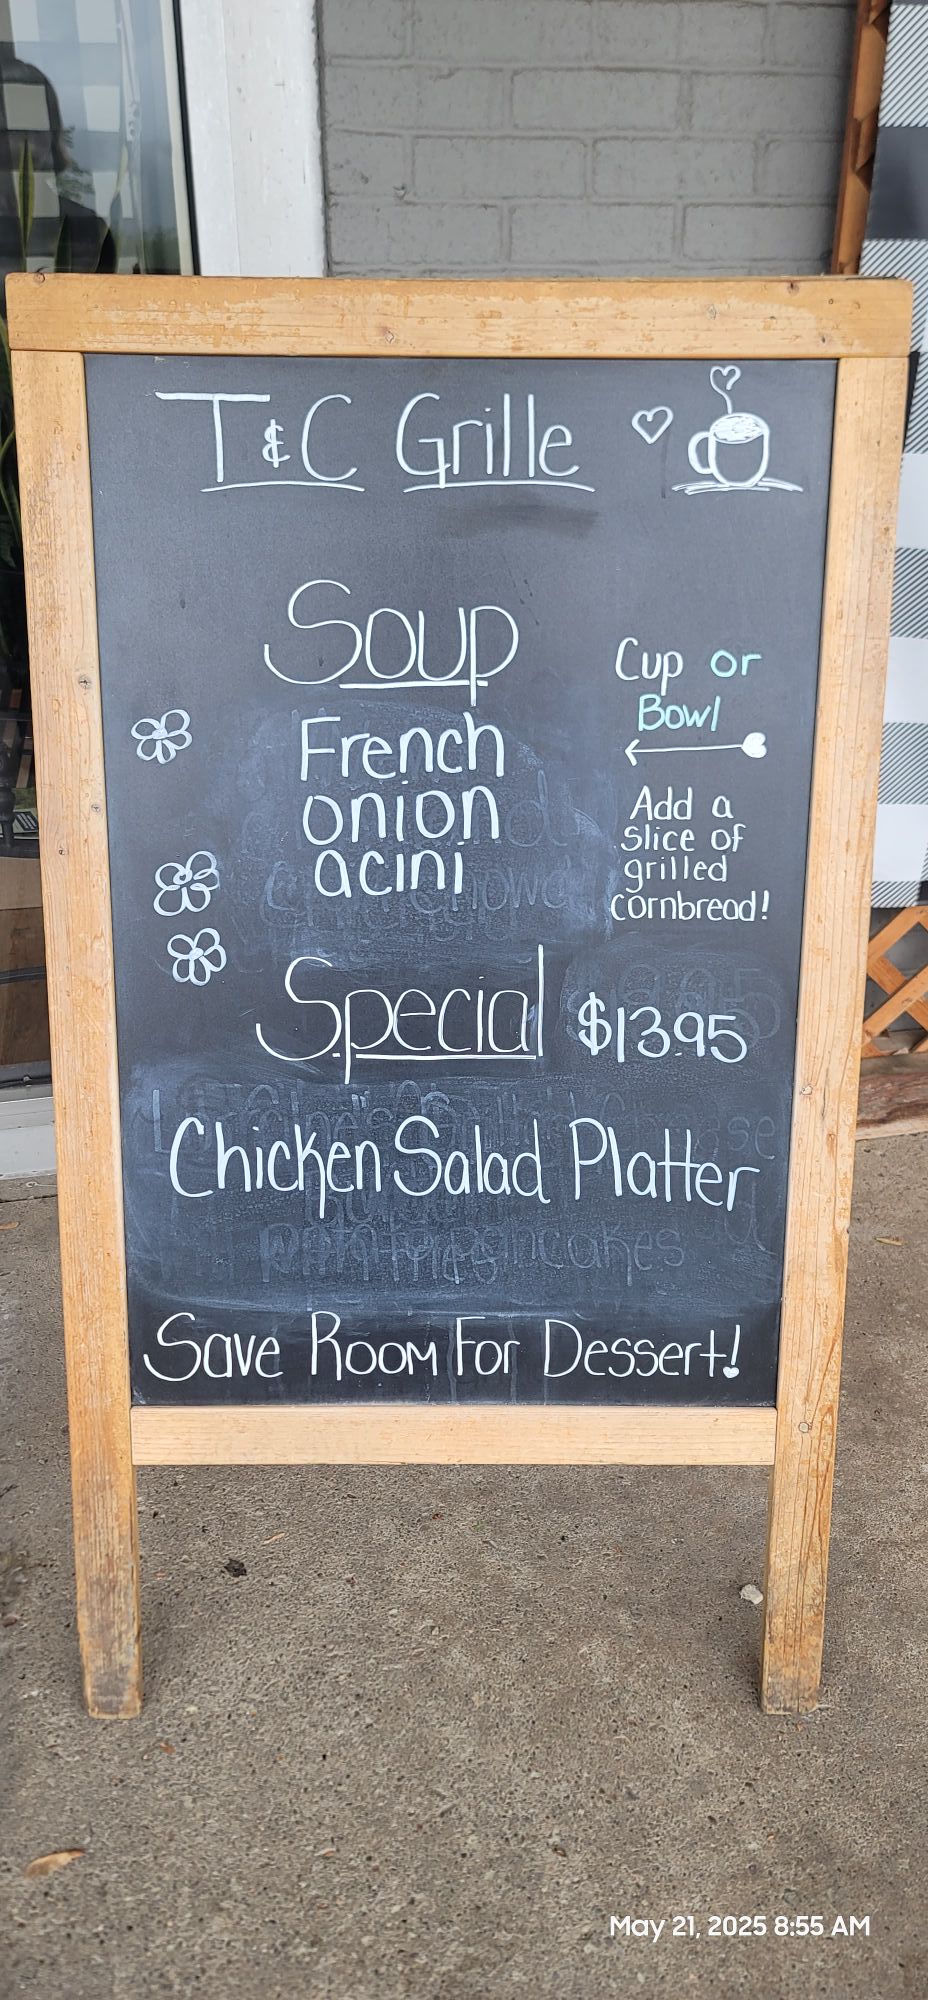 T & C Grille
Soup
French
onion
acini
Cup or
Bowl
Add a
slice of
grilled
cornbread!
Special $13.95
Chicken Salad Platter
Save Room For Dessert!
May 21, 2025 8:55 AM